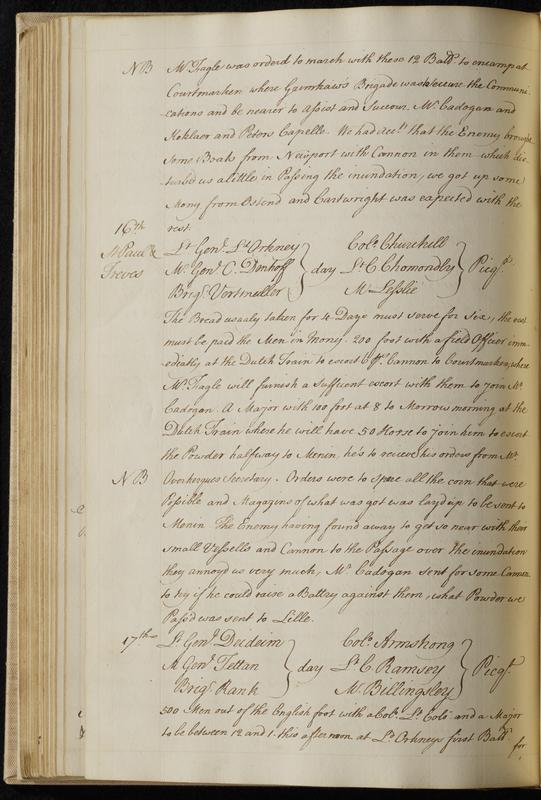 NB Mr. Fagle was orderd to march with these 12 Batts. to encamp at
Courtmarken where Gavorkaw's Brigade was to secure the Communi=
cations and be nearer to Assist and Succour Mr. Cadogan and
Koklaer and Peters Capelle. We had recd. that the Enemy brought
some Boats from Newport with Cannon in them which dis=
turbd us a little in Passing the inundation, we got up some
Mony from Ostend and Cartwright was expected with the
rest.
16th
St Paul &
Treves
Lt Genl. Ld Orkney
M. Genl. C. Donhoff
Brigr. Vortmuller
day
Colo. Churchill
Lt C Chomondly
M Leslie
Picqts.
The Bread usualy taken for 4 Days must serve for Six, the rest
must be paid the Men in Mony. 200 foot with a field Officer imm=
ediatly at the Dutch Train to escort 6 ps. Cannon to Courtmarken, where
Mr. Fagle will furnish a sufficent escort with them to joyn Mr.
Cadogan. A Major with 100 foot at 8 to Morrow morning at the
Dutch Train where he will have 50 Horse to joyn him to escort
the Powder halfway to Menin, he's to recieve his orders from Mr.
Overkerques Secretary.
NB Orders were to spare all the corn that were
Possible and Magazins of what was got was layd up to be sent to
Menin. The Enemy having found a way to get so near with their
small Vessells and Cannon to the Passage over the inundation
they annoyd us very much, Mr. Cadogan sent for some Cannon
to try if he could raise a Battery against them, what Powder we
Pass'd was sent to Lille.
17th
Lt. Genl. Dedeim
M Genl. Tettan
Brigr. Rank
day
Colo. Armstrong
Lt. C. Ramsey
M. Billingsley
Picqt.
500 Men out of the English foot with a Colo. Lt. Colo. and a Major
to be between 12 and 1 this afternoon at Ld. Orkneys first Batt.
for